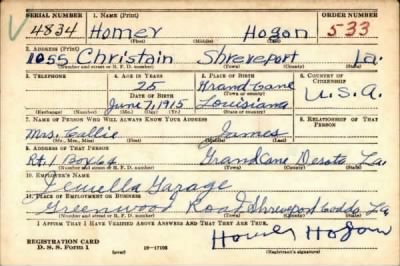 SERIAL NUMBER 1. NAME (Print) ORDER NUMBER
V 4834 Homer Hogan 533
(First) (Middle) (Last)
2. ADDRESS (Print)
1055 Christain Shreveport La.
(Number and street or R. F. D. number) (Town) (County) (State)
3. TELEPHONE 4. AGE IN YEARS 5. PLACE OF BIRTH 6. COUNTRY OF CITIZENSHIP
25 Grand Cane
DATE OF BIRTH (Town or county) U.S.A.
June 7, 1915 Louisiana
(Exchange) (Number) (Mo.) (Day) (Yr.) (State or country)
7. NAME OF PERSON WHO WILL ALWAYS KNOW YOUR ADDRESS 8. RELATIONSHIP OF THAT PERSON
Mrs. Callie James
(Mr., Mrs., Miss) (First) (Middle) (Last)
9. ADDRESS OF THAT PERSON
Rt. 1 Box 64 Grand Cane Desoto La.
(Number and street or R. F. D. number) (Town) (County) (State)
10. EMPLOYER'S NAME
Jewella Garage
11. PLACE OF EMPLOYMENT OR BUSINESS
Greenwood Road Shreveport Caddo La
(Number and street or R. F. D. number) (Town) (County) (State)
I AFFIRM THAT I HAVE VERIFIED ABOVE ANSWERS AND THAT THEY ARE TRUE.
REGISTRATION CARD
D. S. S. Form 1 (over) 16—17105 Homer Hogan
(Registrant's signature)